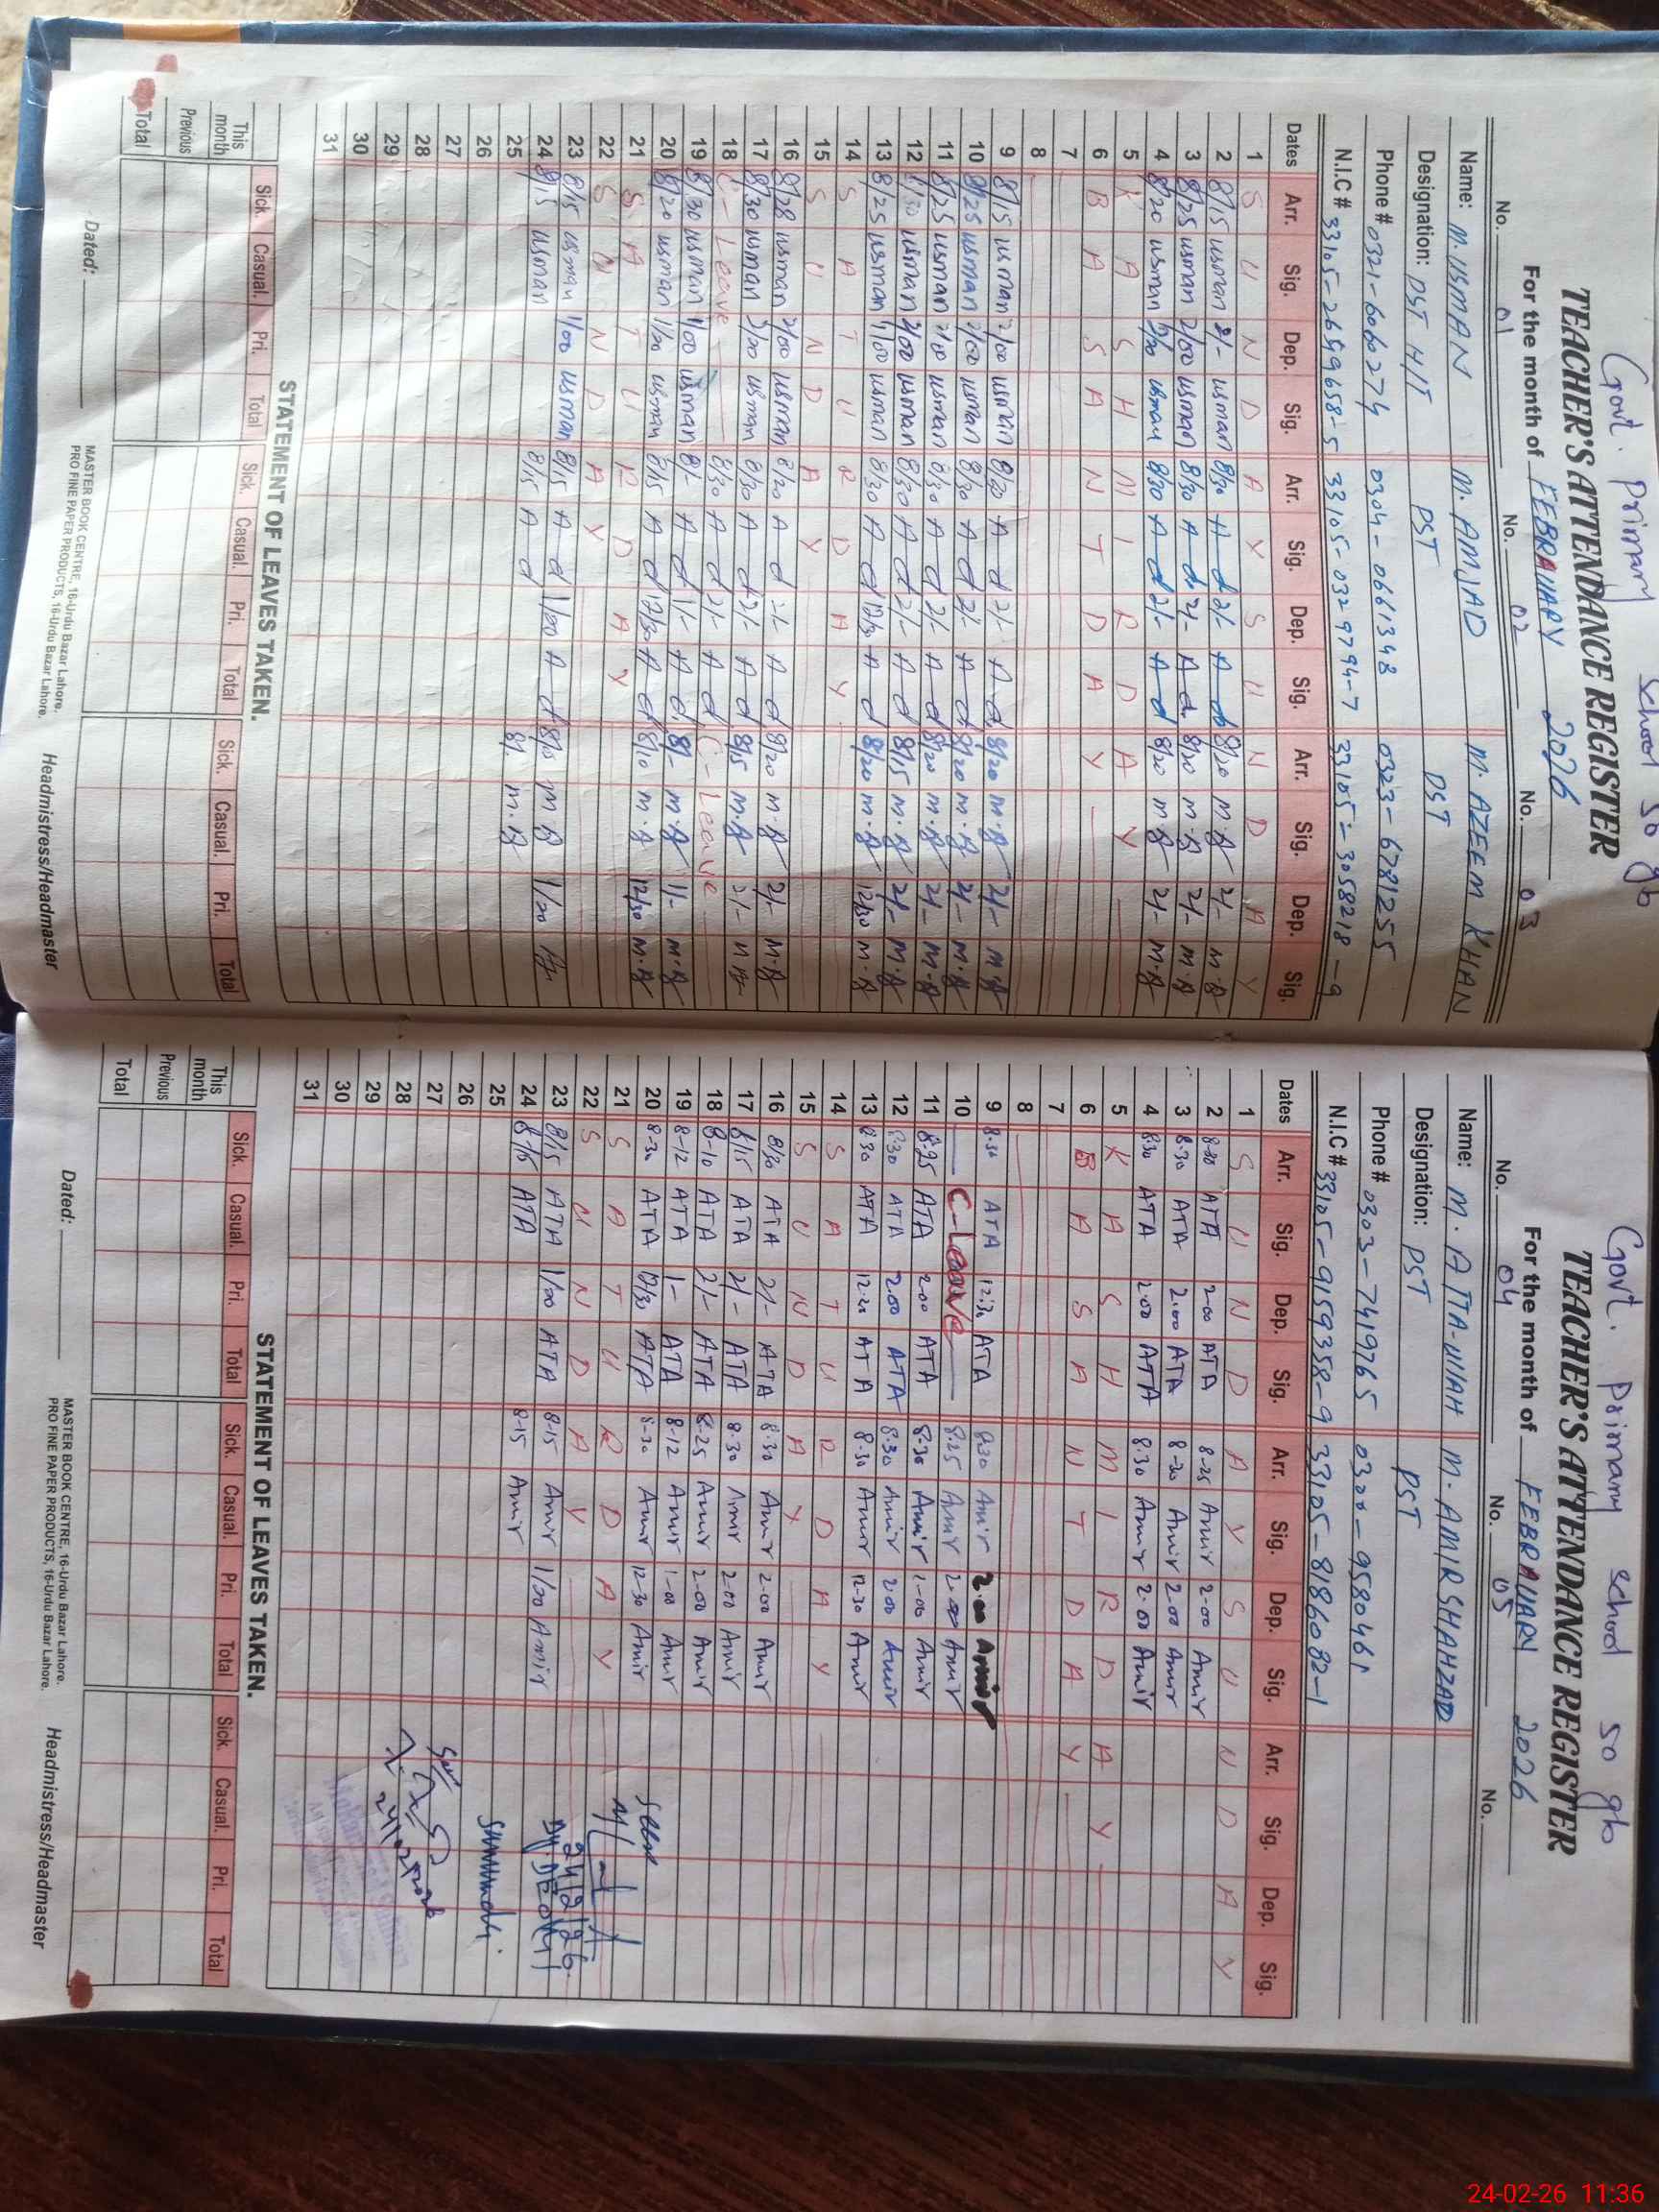 Govt. Primary school 50 gb
TEACHER'S ATTENDANCE REGISTER
For the month of FEBRAUARY 2026
No. 01 No. 02 No. 03
Name: M. USMAN M. AMJAD M. AZEEM KHAN
Designation: PST H/T PST PST
Phone # 0321-6060274 0304-0661348 0323-6781255
N.I.C # 33105-2699658-5 33105-0329794-7 33105-3058218-9
Dates Arr. Sig. Dep. Sig. Arr. Sig. Dep. Sig. Arr. Sig. Dep. Sig.
1 S U N D A Y S U N D A Y
2 8/15 usman 2/- usman 8/30 A d 2/- A d 8/20 M.A 2/- M.A
3 8/25 usman 2/00 usman 8/30 A d 2/- A d 8/20 M.A 2/- M.A
4 8/20 usman 2/00 usman 8/30 A d 2/- A d 8/20 M.A 2/- M.A
5 K A S H M I R D A Y
6 B A S A N T D A Y
7
8
9 8/15 usman 2/00 usman 8/20 A d 2/- A d 8/20 M.A 2/- M.A
10 8/25 usman 2/00 usman 8/30 A d 2/- A d 8/20 M.A 2/- M.A
11 8/25 usman 2/00 usman 8/30 A d 2/- A d 8/20 M.A 2/- M.A
12 8/30 usman 2/00 usman 8/30 A d 2/- A d 8/15 M.A 2/- M.A
13 8/25 usman 1/00 usman 8/30 A d 12/30 A d 8/20 M.A 12/30 M.A
14 S A T U R D A Y
15 S U N D A Y
16 8/28 usman 2/00 usman 8/20 A d 2/- A d 8/20 M.A 2/- M.A
17 8/30 usman 2/00 usman 8/30 A d 2/- A d 8/15 M.A 2/- M A
18 C-Leave 8/30 A d 2/- A d C-Leave
19 8/30 usman 1/00 usman 8/- A d 1/- A d 8/- M.A 1/- M.A
20 8/20 usman 1/00 usman 8/15 A d 12/30 A d 8/10 M.A 12/30 M.A
21 S A T U R D A Y
22 S U N D A Y
23 8/15 usman 1/00 usman 8/15 A d 1/00 A d 8/10 M A 1/00
24 8/15 usman 8/15 A d 8/- M.A
25
26
27
28
29
30
31
STATEMENT OF LEAVES TAKEN.
Sick. Casual. Pri. Total Sick. Casual. Pri. Total Sick. Casual. Pri. Total
This month
Previous
Total
Dated:
MASTER BOOK CENTRE, 16-Urdu Bazar Lahore.
PRO FINE PAPER PRODUCTS, 16-Urdu Bazar Lahore.
Headmistress/Headmaster
Govt. Primary school 50 gb
TEACHER'S ATTENDANCE REGISTER
For the month of FEBRAUARY 2026
No. 04 No. 05 No.
Name: M. ATTA-ULLAH M. AMIR SHAHZAD
Designation: PST PST
Phone # 0303-7419765 0300-9580461
N.I.C # 33105-9159358-9 33105-8186082-1
Dates Arr. Sig. Dep. Sig. Arr. Sig. Dep. Sig. Arr. Sig. Dep. Sig.
1 S U N D A Y S U N D A Y
2 8:30 ATA 2.00 ATA 8-25 Amir 2-00 Amir
3 8.30 ATA 2.00 ATA 8-30 Amir 2.00 Amir
4 8:30 ATA 2.00 ATA 8.30 Amir 2.00 Amir
5 K A S H M I R D A Y
6 B A S A N T D A Y
7
8
9 8.30 ATA 12:30 ATA 8:30 Amir 2.00 Amir
10 C-Leave 8.25 Amir 2.00 Amir
11 8.25 ATA 2.00 ATA 8.30 Amir 2-00 Amir
12 8:30 ATA 2.00 ATA 8.30 Amir 2.00 Amir
13 8:30 ATA 12.20 ATA 8-30 Amir 12-30 Amir
14 S A T U R D A Y
15 S U N D A Y
16 8/30 ATA 2/- ATA 8.30 Amir 2-00 Amir
17 8/15 ATA 2/- ATA 8.30 Amir 2-00 Amir
18 8-10 ATA 2/- ATA 8.25 Amir 2-00 Amir
19 8-12 ATA 1- ATA 8-12 Amir 1-00 Amir
20 8-30 ATA 12/30 ATA 8-30 Amir 12-30 Amir
21 S A T U R D A Y
22 S U N D A Y
23 8/15 ATA 1/00 ATA 8-15 Amir 1/00 Amir
24 8/15 ATA 8-15 Amir
25
26
27
28
29
30
31
Seen
24/2/26
Dy. DEO
24/02/2026
STATEMENT OF LEAVES TAKEN.
Sick. Casual. Pri. Total Sick. Casual. Pri. Total Sick. Casual. Pri. Total
This month
Previous
Total
Dated:
MASTER BOOK CENTRE, 16-Urdu Bazar Lahore.
PRO FINE PAPER PRODUCTS, 16-Urdu Bazar Lahore.
Headmistress/Headmaster
24-02-26 11:36